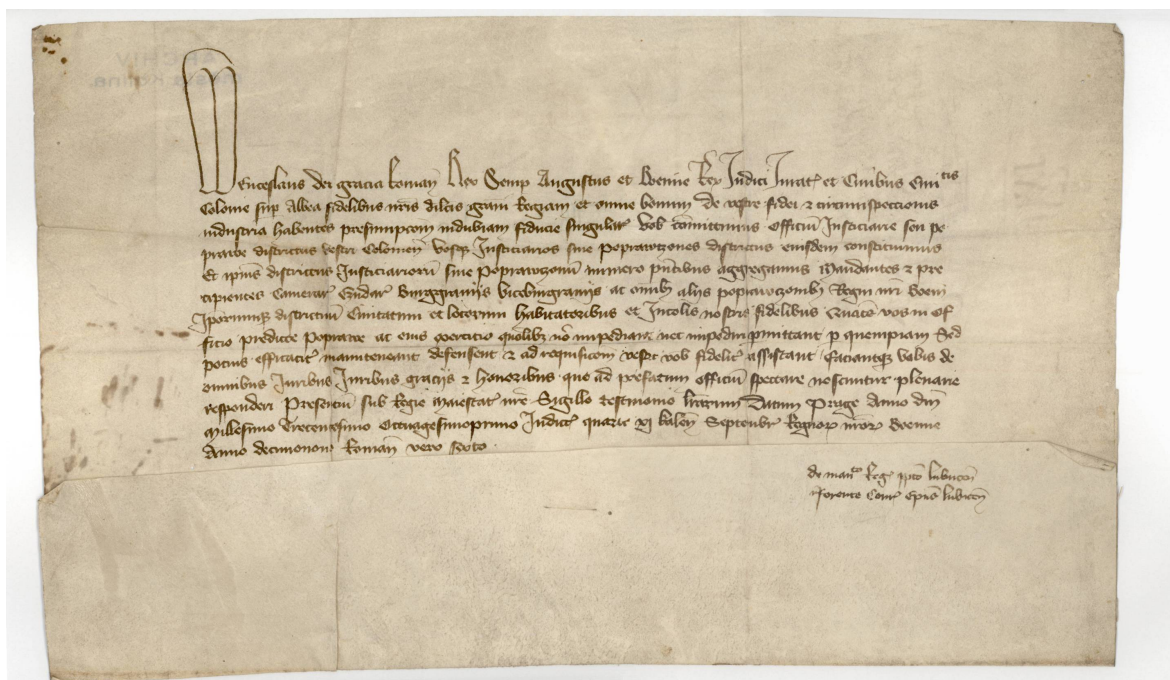 Wenceslaus dei gracia Roman̄ Rex Semp Augustus et Boemie Rex Iudici Iurat̛ et Ciuibus Ciuitis
Colonie sup Albea fidelibus nr̄is dilcīs grām Regiam et omne bonum De vestre fidei et circumspeccionis
industria habentes presumpcōm indubiam fiducie singular̛ vob̄ cōmittimus Officiū Iusticiarie seu po
prauce districtus vestri Colonien̄ vosq̨ Iusticiarios siue Poprawczones districtus eiusdem constituimus
Et ip̄ius districtus Iusticiariorū siue Poprawczonū numero pn̄tibus aggregamus Mandantes et pre
cipientes Camerar̛ Czudar̛ Burggrauijs Viceburggrauijs ac om̄ib᷒ alijs poprawczonib᷒ Regni nr̄i Boem̄
Ip̄orumq̨ districtuū Ciuitatum et locorum habitatoribus et Incolis nostris fidelibus Quatȩ̄ vos in Of
ficio predicte Poprauce ac eius exercicio quōlib̨ nō impediant nec impediri pmittant p quempiam Sed
pocius efficacit̛ manuteneant defensent et ad requisicōem vestr̄ vob̄ fidelit̛ assistant faciantq̨ vobis de
omnibus Iuribus graciis et honoribus que ad prefatum officiū spectare noscuntur plenarie
responderi Presenciū sub Regie Maiestat̛ nr̄e Sigillo testimonio lr̄arum Datum Prage Anno dn̄i
Millesimo Trecentesimo Octuagesimoprimo Indict̛ quarta xj kalen̄ Septembr̛ Regnor̨ nr̄or̨ Boemie
Anno decimonono Roman̄ vero Sexto
de mand̄ Reg̛ 
Conr̛ Ep̄us lubicen̄